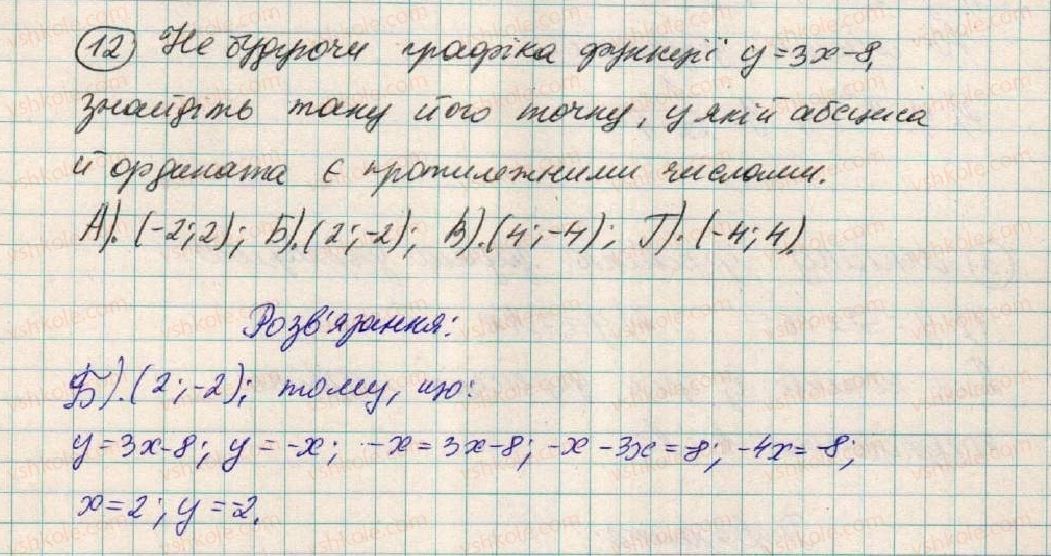 12 Не будуючи графіка функції y=3x-8,
знайдіть таку його точку, у якій абсциса
й ордината є протилежними числами.
А). (-2;2); Б). (2;-2); В). (4;-4); Г). (-4;4).
Розв'язання:
Б). (2;-2); тому, що:
y=3x-8; y=-x; -x=3x-8; -x-3x=-8; -4x=-8;
x=2; y=-2.